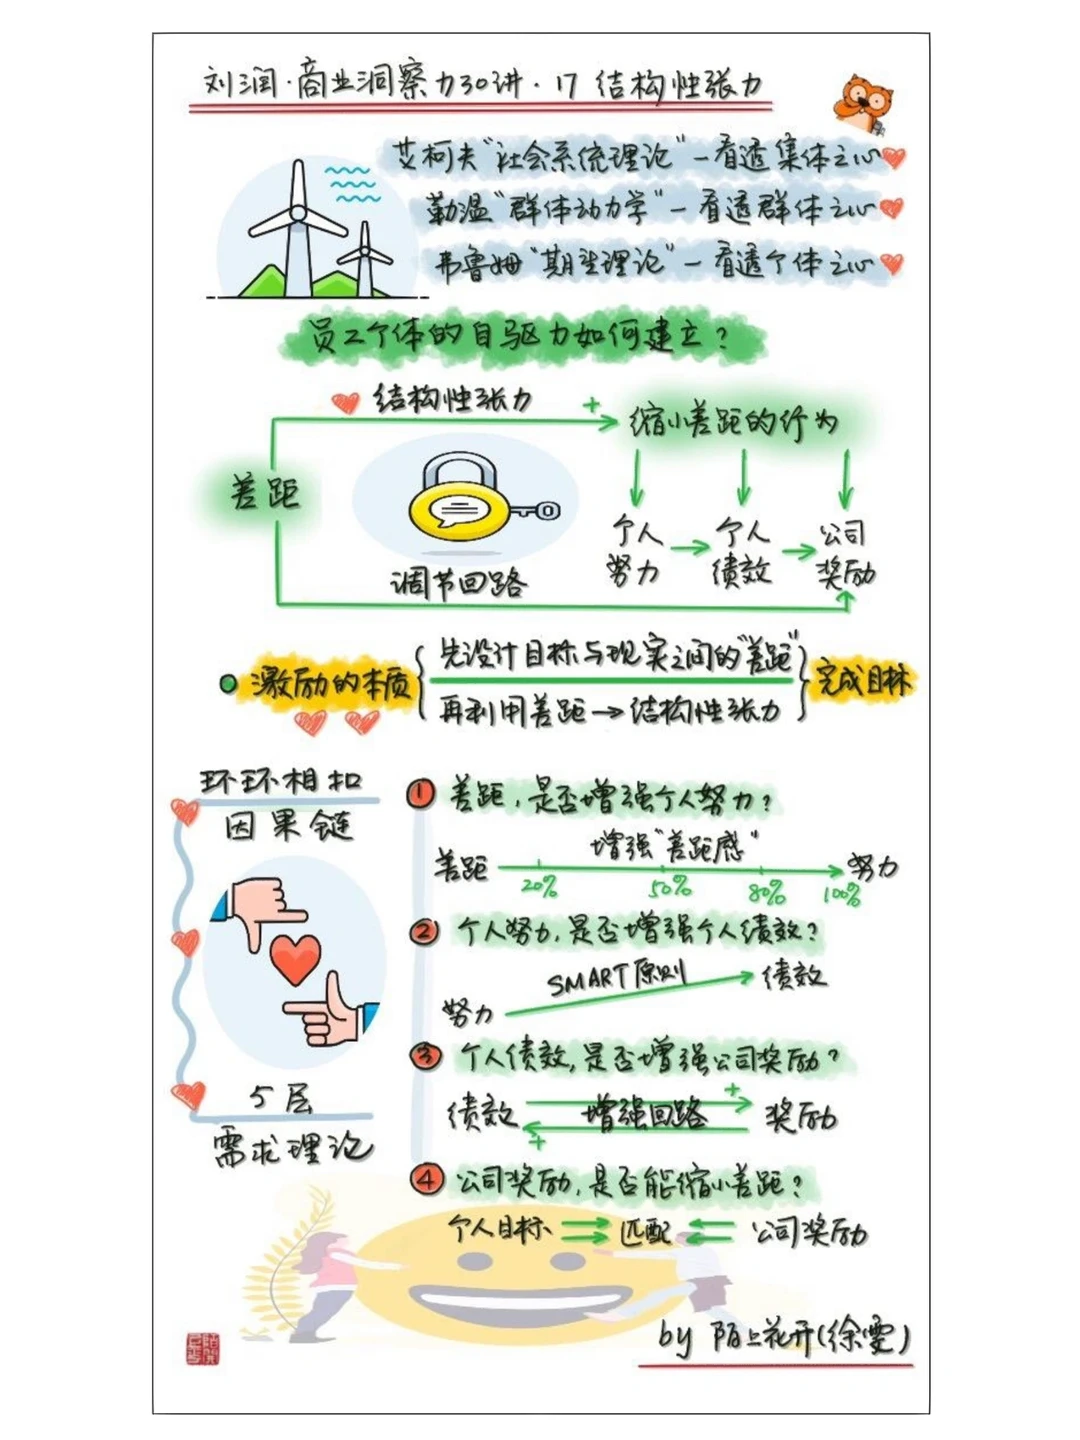 刘润·商业洞察力30讲·17 结构性张力
艾柯夫"社会系统理论"—看透集体之心
勒温"群体动力学"—看透群体之心
弗鲁姆"期望理论"—看透个体之心
员工个体的自驱力如何建立?
结构性张力
+
缩小差距的行为
差距
个人努力
个人绩效
公司奖励
调节回路
激励的本质
先设计目标与现实之间的"差距"
再利用差距→结构性张力
完成目标
环环相扣
因果链
5层
需求理论
① 差距,是否增强个人努力?
增强"差距感"
差距
努力
20% 50% 80% 100%
② 个人努力,是否增强个人绩效?
SMART原则
绩效
努力
③ 个人绩效,是否增强公司奖励?
+
绩效 增强回路 奖励
+
④ 公司奖励,是否能缩小差距?
个人目标 匹配 公司奖励
by 陌上花开(徐雯)